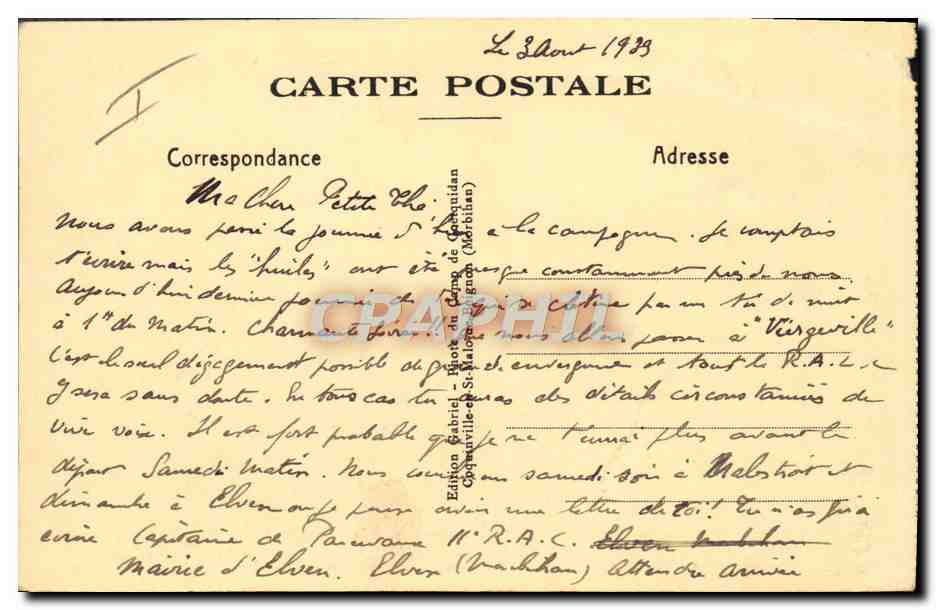 Le 3 Aout 1939
CARTE POSTALE
I
Correspondance
Adresse
Ma chère Petite Thé
Nous avons passé la journée d'hier à la campagne. Je comptais
t'écrire mais les "huiles" ont été presque constamment près de nous
Aujourd'hui dernière journée de tir qui se clôture par un tir de nuit
à 1h du matin. Charmante soirée!! que nous allons passer à "Viergeville"
C'est le seul dégagement possible de grande envergure et tout le R.A.C.
y sera sans doute. En tous cas tu auras des détails circonstanciés de
vive voix. Il est fort probable que je ne t'écrirai plus avant le
départ Samedi matin. Nous couchons samedi soir à Malestroit et
dimanche à Elven où je pense avoir une lettre de toi! Tu n'as qu'à
écrire Capitaine de 11e R.A.C. Elven Morbihan
Mairie d'Elven. Elven (Morbihan) Attendre arrivée
Edition Gabriel - Photo du Camp de Coëtquidan
Coquinville-en-St-Malo-de-Beignon (Morbihan)
CPAPHIL